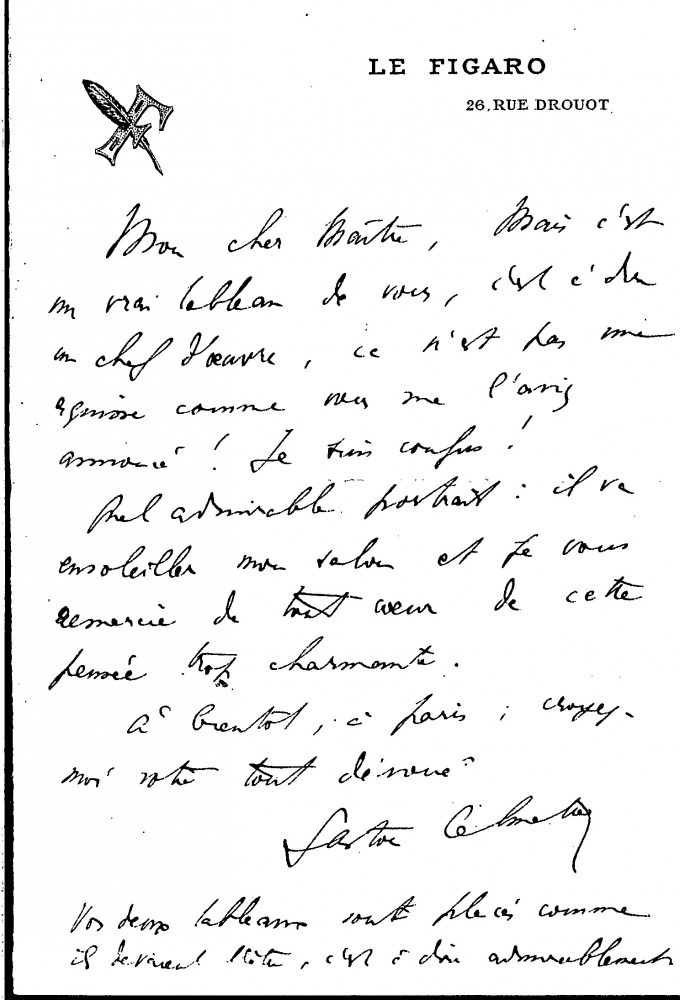 LE FIGARO
26, RUE DROUOT
Mon cher Maître, Mais c'est
un vrai tableau de vous, c'est à dire
un chef d'œuvre, ce n'est pas une
esquisse comme vous me l'aviez
annoncé ! Je suis confus !
Quel admirable portrait : il va
ensoleiller mon salon et je vous
remercie de tout cœur de cette
pensée trop charmante.
À bientôt, à Paris ; croyez-
moi votre tout dévoué
Gaston Calmette
Vos deux tableaux sont placés comme
ils devaient l'être, c'est à dire admirablement